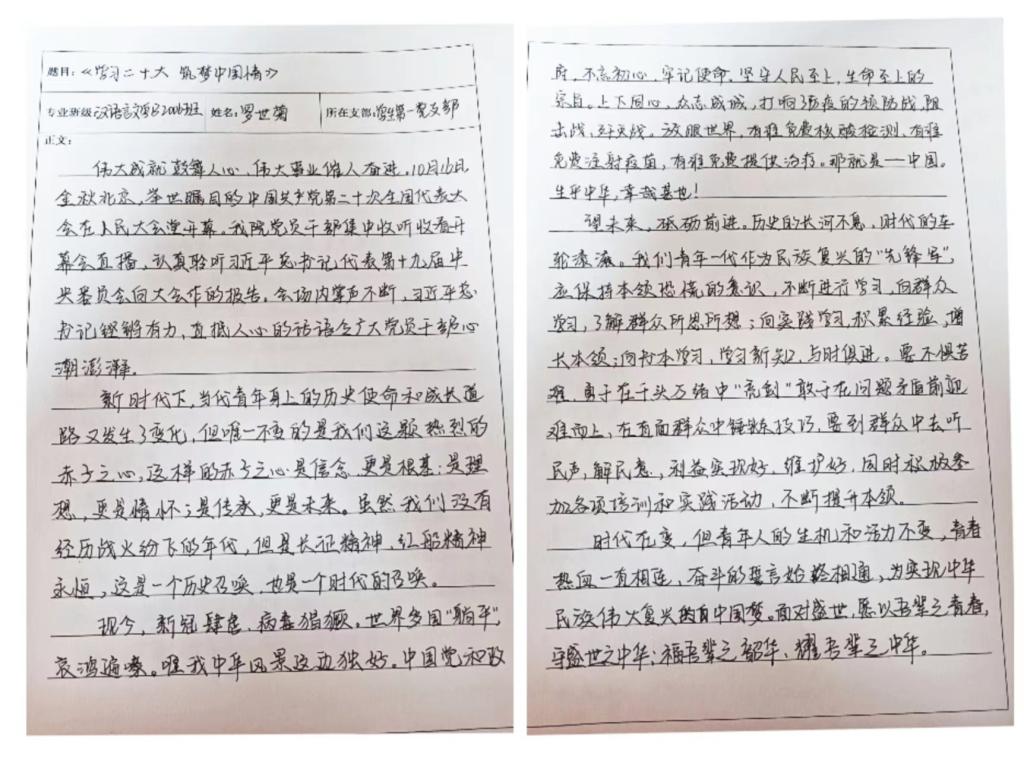 题目:《学习二十大 筑梦中国情》
专业班级:汉语言文学2006班 姓名:罗世菊 所在支部:学生第一党支部
正文:
伟大成就鼓舞人心,伟大事业催人奋进,10月16日
金秋北京,举世瞩目的中国共产党第二十次全国代表大
会在人民大会堂开幕。我院党员干部集中收听收看开
幕会直播,认真聆听习近平总书记代表第十九届中
央委员会向大会作的报告。会场内掌声不断,习近平总
书记铿锵有力,直抵人心的话语令广大党员干部心
潮澎湃。
新时代下,当代青年身上的历史使命和成长道
路又发生了变化,但唯一不变的是我们这颗热烈的
赤子之心,这样的赤子之心是信念,更是根基;是理
想,更是情怀;是传承,更是未来。虽然我们没有
经历战火纷飞的年代,但是长征精神,红船精神
永恒,这是一个历史召唤,也是一个时代的召唤。
现今,新冠肆虐,病毒猖獗。世界多国"躺平",
哀鸿遍野。唯我中华风景这边独好。中国党和政
府,不忘初心,牢记使命,坚守人民至上,生命至上的
宗旨。上下同心,众志成城,打响了防疫的预防战,阻
击战,歼灭战。放眼世界,有谁免费核酸检测,有谁
免费注射疫苗,有谁免费提供治疗。那就是一中国。
生乎中华,幸哉甚也!
望未来,砥砺前进。历史的长河不息,时代的车
轮滚滚。我们青年一代作为民族复兴的"先锋军",
应保持本领恐慌的意识,不断进行学习,向群众
学习,了解群众所思所想;向实践学习,积累经验,增
长本领;向书本学习,学习新知,与时俱进。要不惧苦
难,勇于在千头万绪中"亮剑"敢于在问题矛盾前迎
难而上,在直面群众中锤炼技巧,要到群众中去听
民声,解民意,利益实现好,维护好,同时积极参
加各项培训和实践活动,不断提升本领。
时代在变,但青年人的生机和活力不变,青春
热血一直相连,奋斗的誓言始终相通,为实现中华
民族伟大复兴的中国梦。面对盛世,愿以吾辈之青春,
守盛世之中华;福吾辈之韶华,耀吾辈之中华。